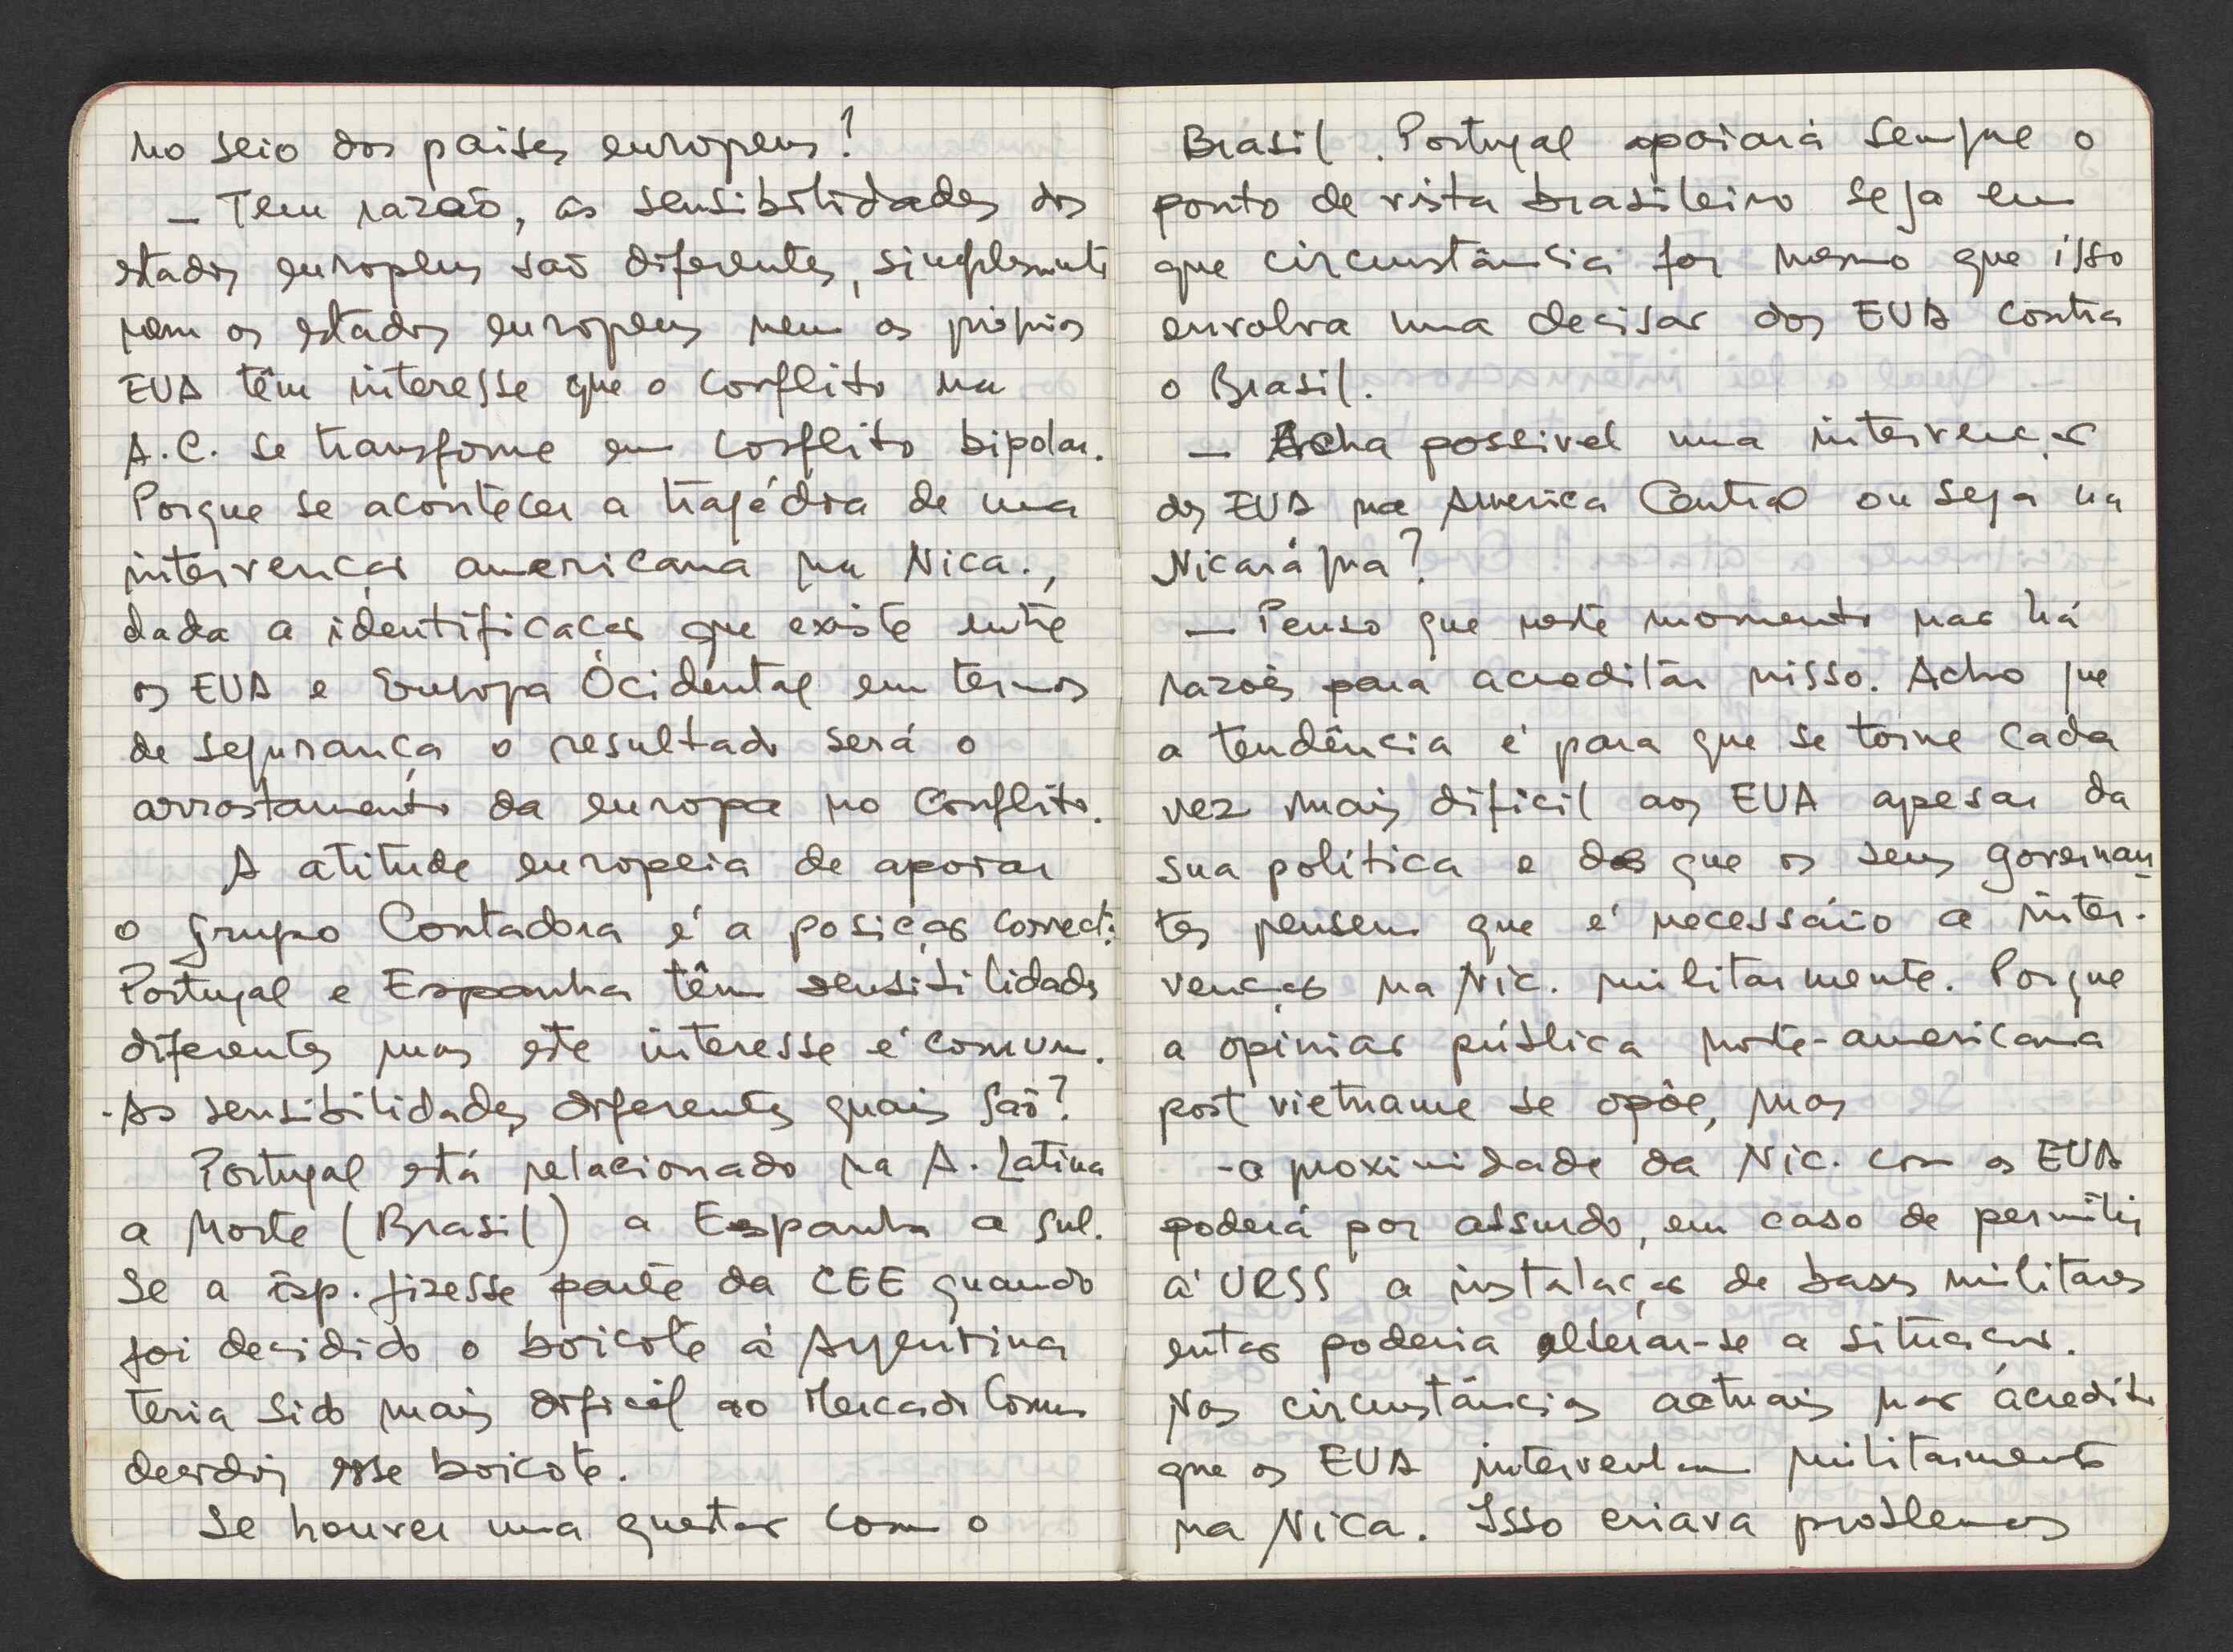 no seio dos países europeus?
– Tem razão, as sensibilidades dos
estados europeus são diferentes, simplesmente
nem os estados europeus nem os próprios
EUA têm interesse que o conflito na
A.C. se transforme em conflito bipolar.
Porque se acontecer a tragédia de uma
intervenção americana na Nica.,
dada a identificação que existe entre
os EUA e Europa Ocidental em termos
de segurança o resultado será o
arrostamento da europa no conflito.
A atitude europeia de apoiar
o grupo Contadora é a posição correcta.
Portugal e Espanha têm sensibilidades
diferentes mas este interesse é comum.
- As sensibilidades diferentes quais são?
Portugal está relacionado na A. Latina
a Norte (Brasil) a Espanha a sul.
Se a Esp. fizesse parte da CEE quando
foi decidido o boicote à Argentina
teria sido mais dificil ao Mercado Comum
decidir esse boicote.
Se houver uma questão com o
Brasil. Portugal apoiará sempre o
ponto de vista brasileiro seja em
que circunstância for mesmo que isso
envolva uma decisão dos EUA contra
o Brasil.
– Acha possivel uma intervenção
dos EUA na America Central ou seja na
Nicarágua?
– Penso que neste momento não há
razões para acreditar nisso. Acho que
a tendência é para que se torne cada
vez mais dificil aos EUA apesar da
sua política e do que os seus governan-
tes pensem que é necessário a inter-
venção na Nic. militarmente. Porque
a opinião pública norte-americana
post vietname se opõe, mas
- a proximidade da Nic. com os EUA
poderá por absurdo, em caso de permitir
à URSS a instalação de bases militares
então poderia alterar-se a situação.
Nas circunstâncias actuais não acredito
que os EUA intervenham militarmente
na Nica. Isso criava problemas